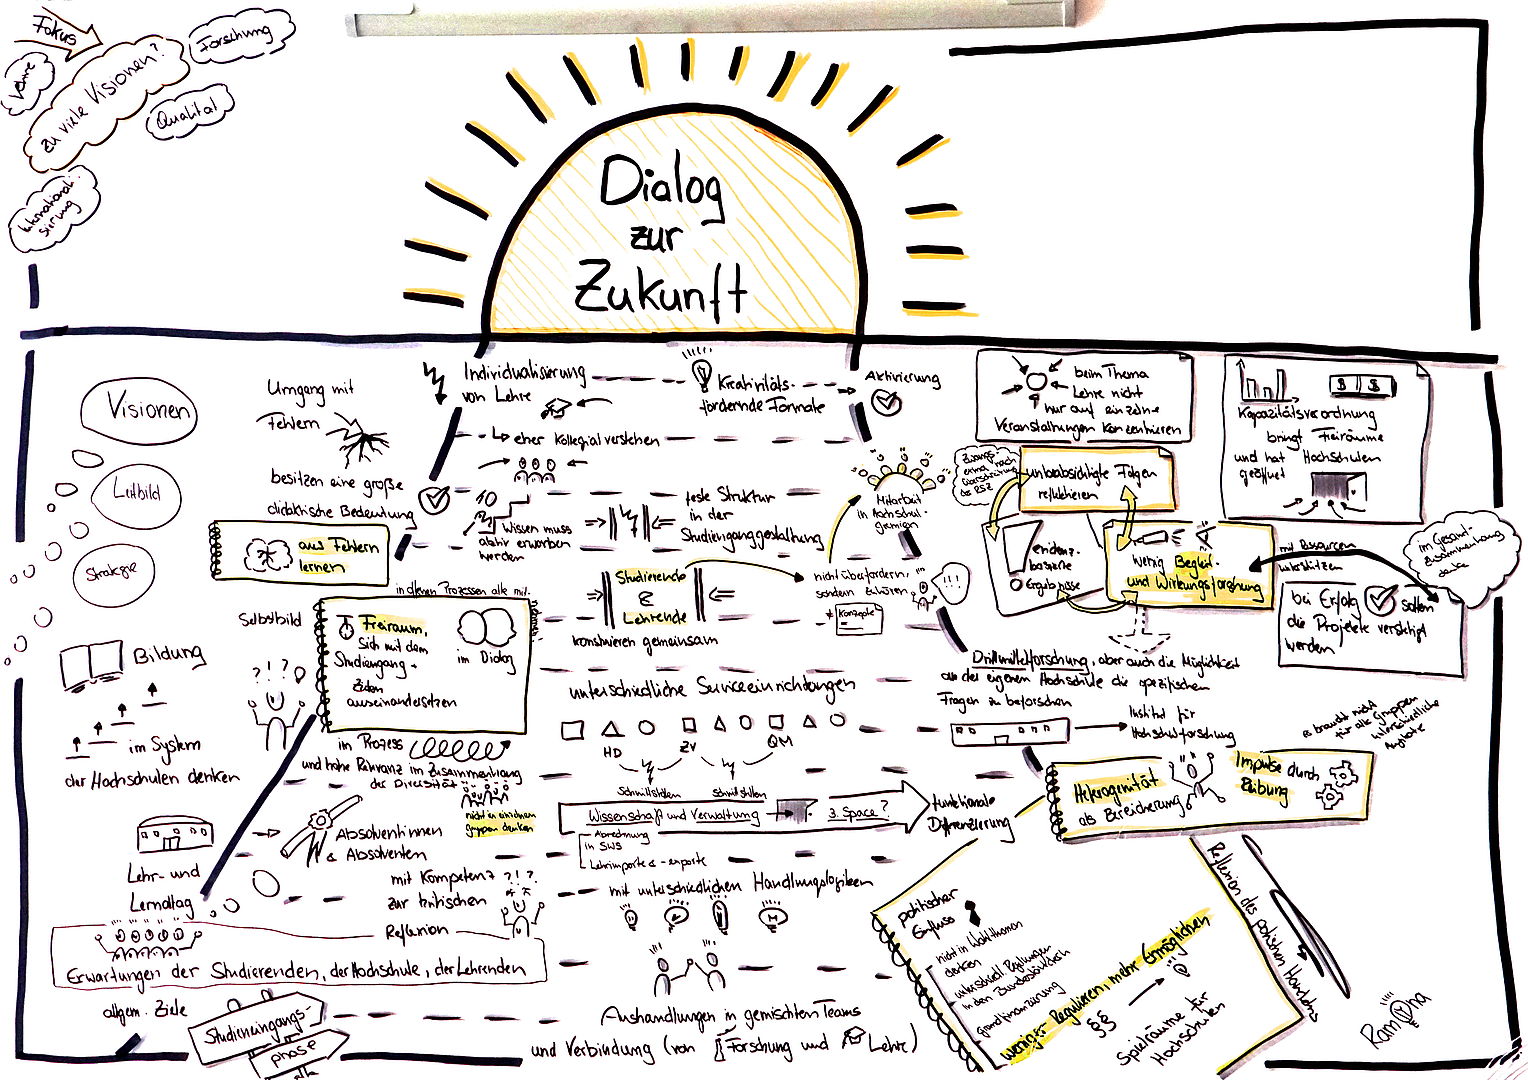 Fokus
Lehre
zu viele Visionen?
Forschung
Qualität
Internationali-
sierung
Dialog
zur
Zukunft
Visionen
Leitbild
Strategie
Bildung
im System
der Hochschulen denken
Lehr- und
Lernalltag
Umgang mit
Fehlern
besitzen eine große
didaktische Bedeutung
aus Fehlern
lernen
Selbstbild
in denen Prozessen alle mit-
nehmen
Freiraum,
sich mit dem
Studiengang +
Zielen
auseinandersetzen
im Dialog
im Prozess
und hohe Relevanz im Zusammenhang
der Diversität
nicht in einzelnen
gruppen denken
Absolventinnen
& Absolventen
mit Kompetenz
zur kritischen
Reflexion
Erwartungen der Studierenden, der Hochschule, der Lehrenden
allgem. Ziele
Studieneingangs-
phase
Individualisierung
von Lehre
Kreativitäts-
fördernde Formate
Aktivierung
eher kollegial verstehen
Wissen muss
aktiv erworben
werden
feste Struktur
in der
Studienganggestaltung
Mitarbeit
in Hochschul-
gremien
Studierende
&
Lehrende
konstruieren gemeinsam
nicht überfordern,
sondern zuhören
!!!
Konzepte
unterschiedliche Serviceeinrichtungen
HD
ZV
QM
Schnittstellen
Schnittstellen
Wissenschaft und Verwaltung
3. Space?
Abrechnung
in SWS
Lehrimporte & -exporte
funktionale
Differenzierung
mit unterschiedlichen Handlungslogiken
Aushandlungen in gemischten Teams
und Verbindung (von Forschung und Lehre)
beim Thema
Lehre nicht
nur auf einzelne
Veranstaltungen konzentrieren
Kapazitätsverordnung
bringt Freiräume
und hat Hochschulen
geöffnet
unbeabsichtigte Folgen
reflektieren
evidenz-
basierte
Ergebnisse
wenig Begleit-
und Wirkungsforschung
mit Ressourcen
unterstützen
im Gesamt-
zusammenhang
denken
bei Erfolg sollen
die Projekte verstetigt
werden
Drittmittelforschung, aber auch die Möglichkeit
an der eigenen Hochschule die spezifischen
Fragen zu beforschen
Institut für
Hochschulforschung
es braucht nicht
für alle gruppen
unterschiedliche
Angebote
Heterogenität
als Bereicherung
Impulse durch
Reibung
politischer
Einfluss
nicht in Wahlthemen
denken
unterschiedl. Regelungen
in den Bundesländern
grundfinanzierung
weniger Regulieren, mehr Ermöglichen
§§
Spielräume für
Hochschulen
Reflexion des politischen Handelns
Ramona